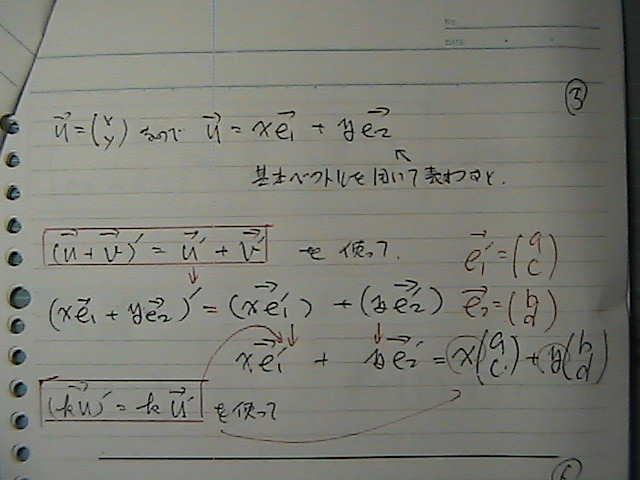 No.
DATE
③
u⃗ = (x y) なので u⃗ = xe₁⃗ + ye₂⃗
基本ベクトルを用いて表わすと.
(u⃗ + v⃗)′ = u⃗′ + v⃗′ を使って.
e₁⃗′ = (a c)
(xe₁⃗ + ye₂⃗)′ = (xe₁⃗′) + (ye₂⃗′)
e₂⃗′ = (b d)
xe₁⃗′ + ye₂⃗′ = x(a c) + y(b d)
(ku⃗)′ = k u⃗′ を使って